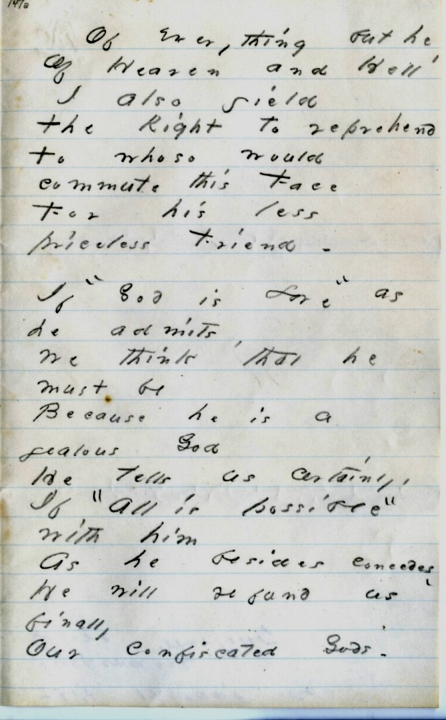 147a
Of Everything but he
Of Heaven and Hell
I also yield
the Right to reprehend
To whoso would
commute this Face
For his less
priceless Friend -
If "God is Love" as
he admits
We think that he
must be
Because he is a
jealous God
He tells us certainly,
If "All is possible"
with him
As he besides concedes
He will refund us
finally
Our confiscated Gods -